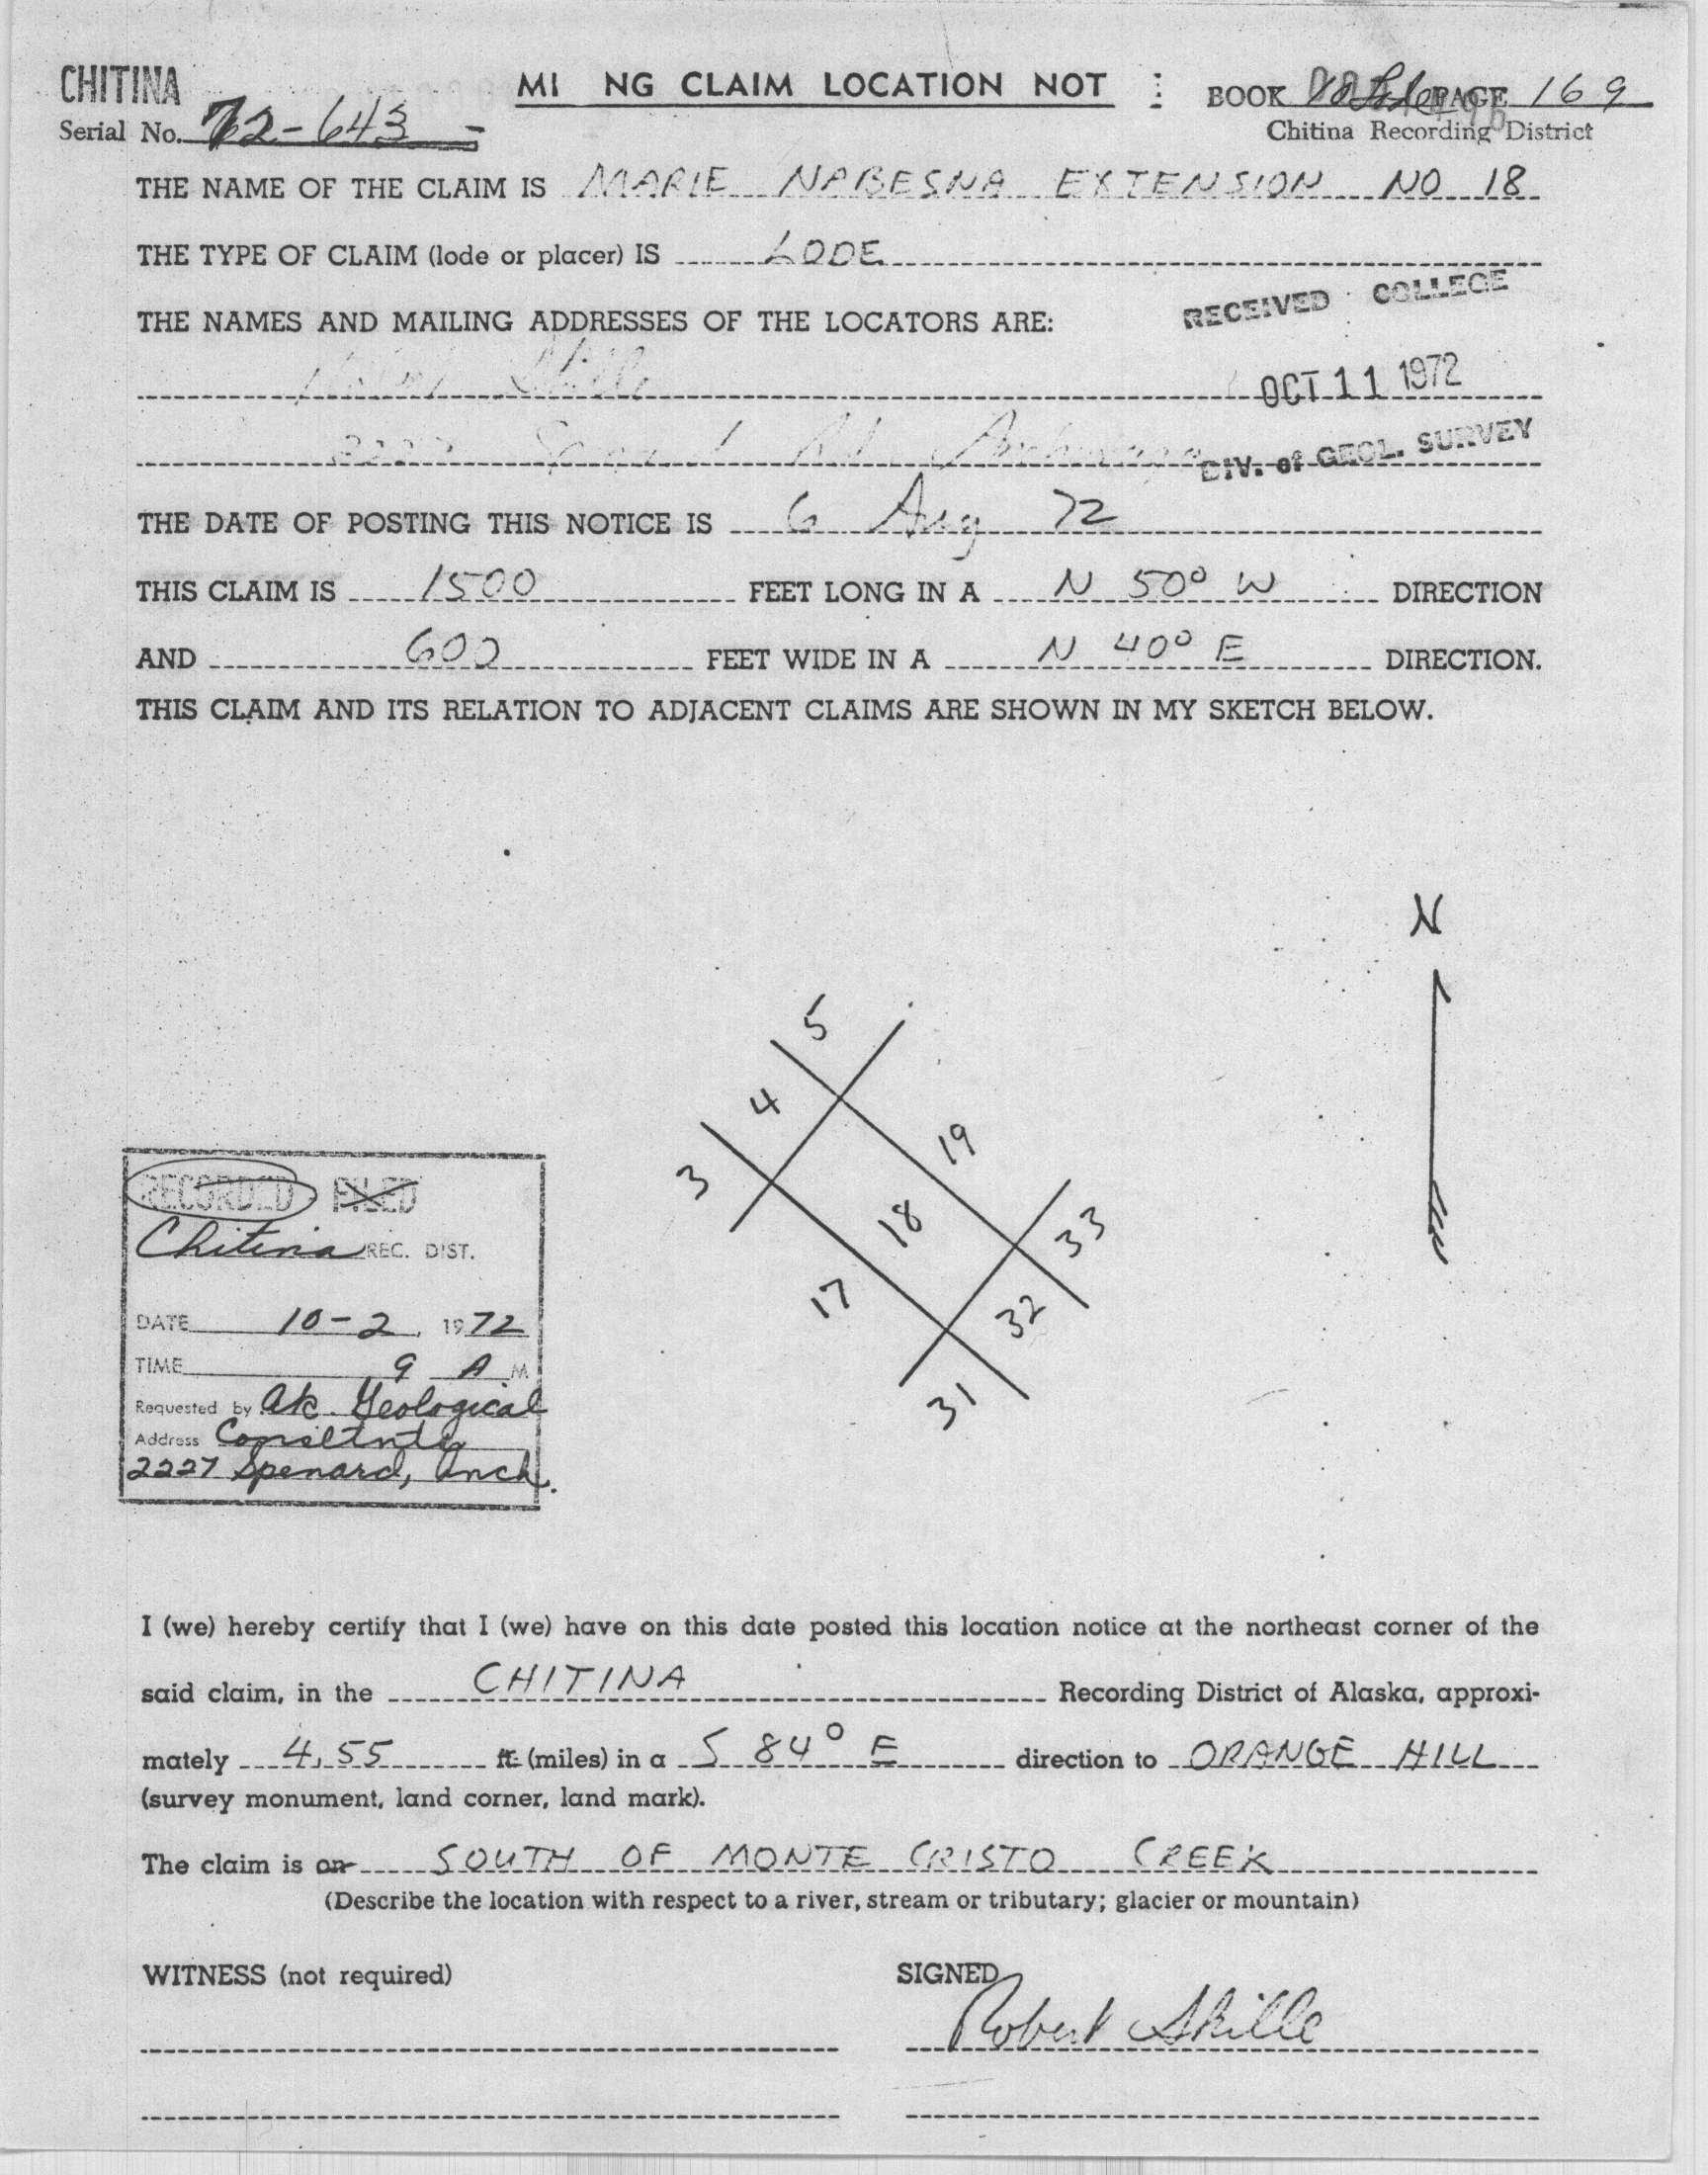 CHITINA
MI NG CLAIM LOCATION NOT
BOOK PAGE 169
Serial No. 72-643
Chitina Recording District
THE NAME OF THE CLAIM IS MARIE NABESNA EXTENSION NO 18
THE TYPE OF CLAIM (lode or placer) IS LODE
RECEIVED COLLEGE
THE NAMES AND MAILING ADDRESSES OF THE LOCATORS ARE:
Skille
OCT 11 1972
Anchorage
DIV. of GEOL. SURVEY
THE DATE OF POSTING THIS NOTICE IS 6 Aug 72
THIS CLAIM IS 1500 FEET LONG IN A N 50° W DIRECTION
AND 600 FEET WIDE IN A N 40° E DIRECTION.
THIS CLAIM AND ITS RELATION TO ADJACENT CLAIMS ARE SHOWN IN MY SKETCH BELOW.
N
5
4
19
3
18
33
17
32
31
RECORDED FILED
Chitina REC. DIST.
DATE 10-2, 1972
TIME 9 A M
Requested by Ak. Geological
Address
2227 Spenard, Anch.
I (we) hereby certify that I (we) have on this date posted this location notice at the northeast corner of the
said claim, in the CHITINA Recording District of Alaska, approxi-
mately 4.55 ft. (miles) in a S 84° E direction to ORANGE HILL
(survey monument, land corner, land mark).
The claim is on SOUTH OF MONTE CRISTO CREEK
(Describe the location with respect to a river, stream or tributary; glacier or mountain)
WITNESS (not required)
SIGNED
Robert Skille